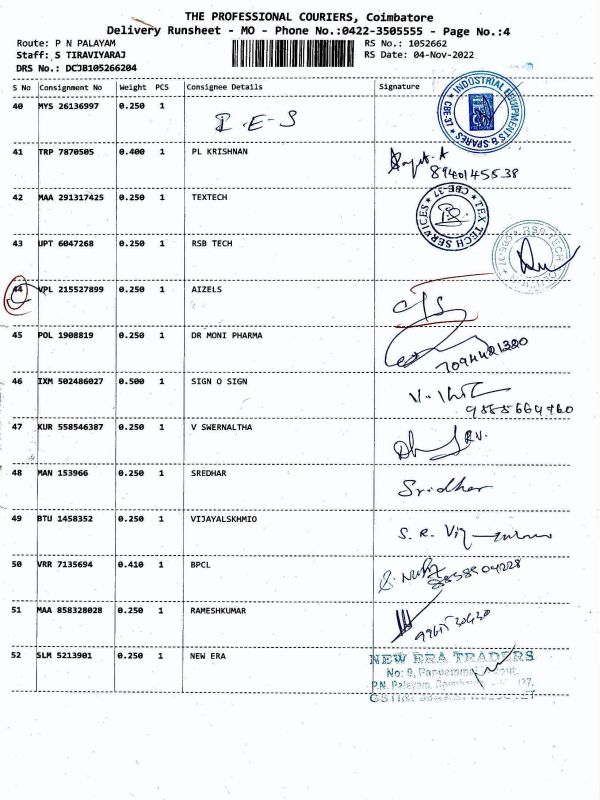 THE PROFESSIONAL COURIERS, Coimbatore
Delivery Runsheet - MO - Phone No.:0422-3505555 - Page No.:4
Route: P N PALAYAM RS No.: 1052662
Staff: S TIRAVIYARAJ RS Date: 04-Nov-2022
DRS No.: DCJB105266204
S No Consignment No Weight PCS Consignee Details Signature
40 MYS 26136997 0.250 1 I.E-S INDUSTRIAL EQUIPMENTS & SPARES CBE-37
41 TRP 7870505 0.400 1 PL KRISHNAN 8940145538
42 MAA 291317425 0.250 1 TEXTECH TEX TECH SERVICES CBE-37
43 UPT 6047268 0.250 1 RSB TECH RSB-TECH
44 VPL 215527899 0.250 1 AIZELS
45 POL 1908819 0.250 1 DR MONI PHARMA
46 IXM 502486027 0.500 1 SIGN O SIGN
47 KUR 558546387 0.250 1 V SWERNALTHA
48 MAN 153966 0.250 1 SREDHAR Sridhar
49 BTU 1458352 0.250 1 VIJAYALSKHMIO S. R.
50 VRR 7135694 0.410 1 BPCL
51 MAA 858328028 0.250 1 RAMESHKUMAR
52 SLM 5213901 0.250 1 NEW ERA NEW ERA TRADERS
No: 9,
P.N. Palayam,